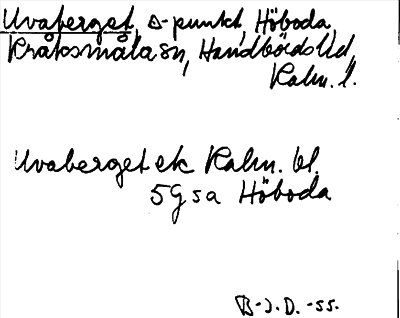 Uvaberget, Δ-punkt, Höboda,
Kråksmåla sn, Handbörds hd,
Kalm. l.
Uvaberget ek Kalm. bl.
5G sa Höboda
B-J. D. -55.